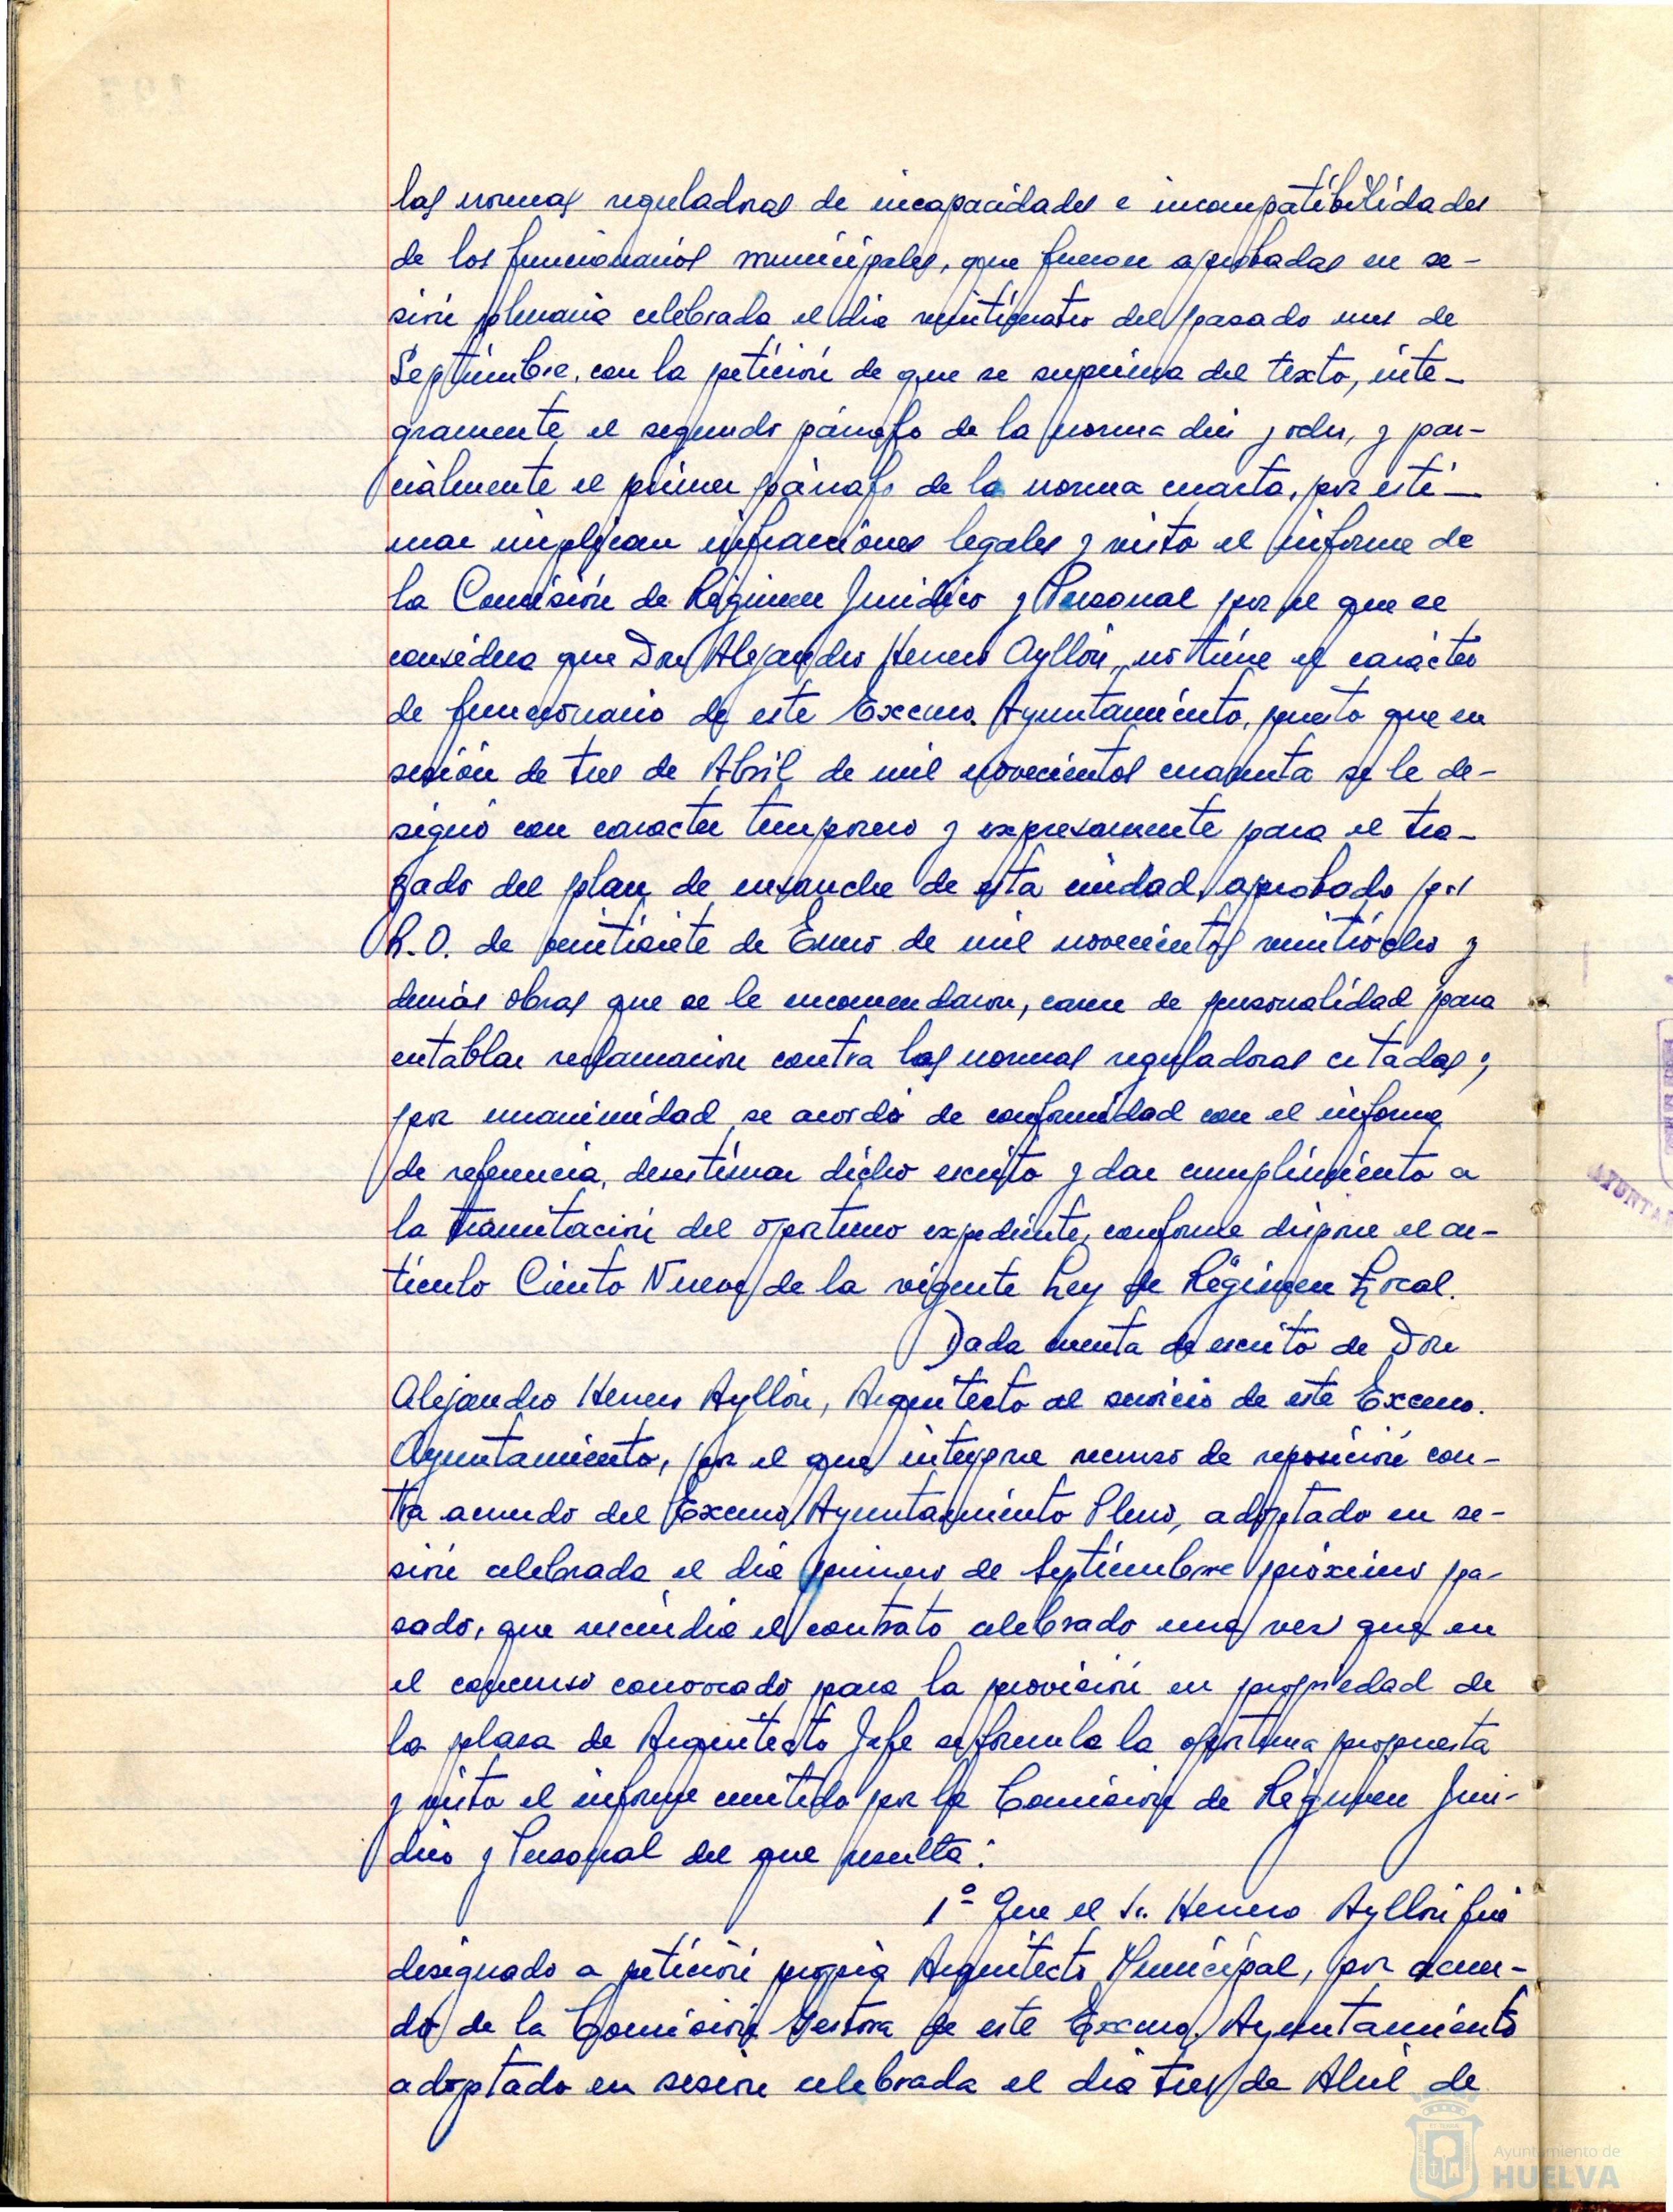 las normas reguladoras de incapacidades e incompatibilidades
de los funcionarios municipales, que fueron aprobadas en se-
sión plenaria celebrada el dia veinticuatro del pasado mes de
Septiembre, con la petición de que se suprima del texto, inte-
gramente el segundo párrafo de la norma diez y ocho, y par-
cialmente el primer párrafo de la norma cuarta, por esti-
mar implican infracciones legales y visto el informe de
la Comisión de Régimen Juridico y Personal por el que se
considera que Don Alejandro Herrero Ayllón, no tiene el carácter
de funcionario de este Excmo. Ayuntamiento, puesto que en
sesión de tres de Abril de mil novecientos cuarenta se le de-
signó con caracter temporero y expresamente para el tra-
zado del plan de ensanche de esta ciudad, aprobado por
R.O. de veintisiete de Enero de mil novecientos veintiocho y
demás obras que se le encomendaron, carece de personalidad para
entablar reclamacion contra las normas reguladoras citadas;
por unanimidad se acordó de conformidad con el informe
de referencia, desestimar dicho escrito y dar cumplimiento a
la tramitación del oportuno expediente, conforme dispone el ar-
ticulo Ciento Nueve de la vigente Ley de Régimen Local.
Dada cuenta de escrito de Don
Alejandro Herrero Ayllón, Arquitecto al servicio de este Excmo.
Ayuntamiento, por el que interpone recurso de reposición con-
tra acuerdo del Excmo Ayuntamiento Pleno, adoptado en se-
sión celebrada el dia primero de Septiembre próximo pa-
sado, que rescindia el contrato celebrado una vez que en
el concurso convocado para la provisión en propiedad de
la plaza de Arquitecto Jefe se formula la oportuna propuesta
y visto el informe emitido por la Comisión de Régimen Juri-
dico y Personal del que resulta:
1º Que el Sr. Herrero Ayllón fué
designado a petición propia Arquitecto Municipal, por acuer-
do de la Comisión Gestora de este Excmo. Ayuntamiento
adoptado en sesion celebrada el dia tres de Abril de
AYUNTA
Ayuntamiento de
HUELVA